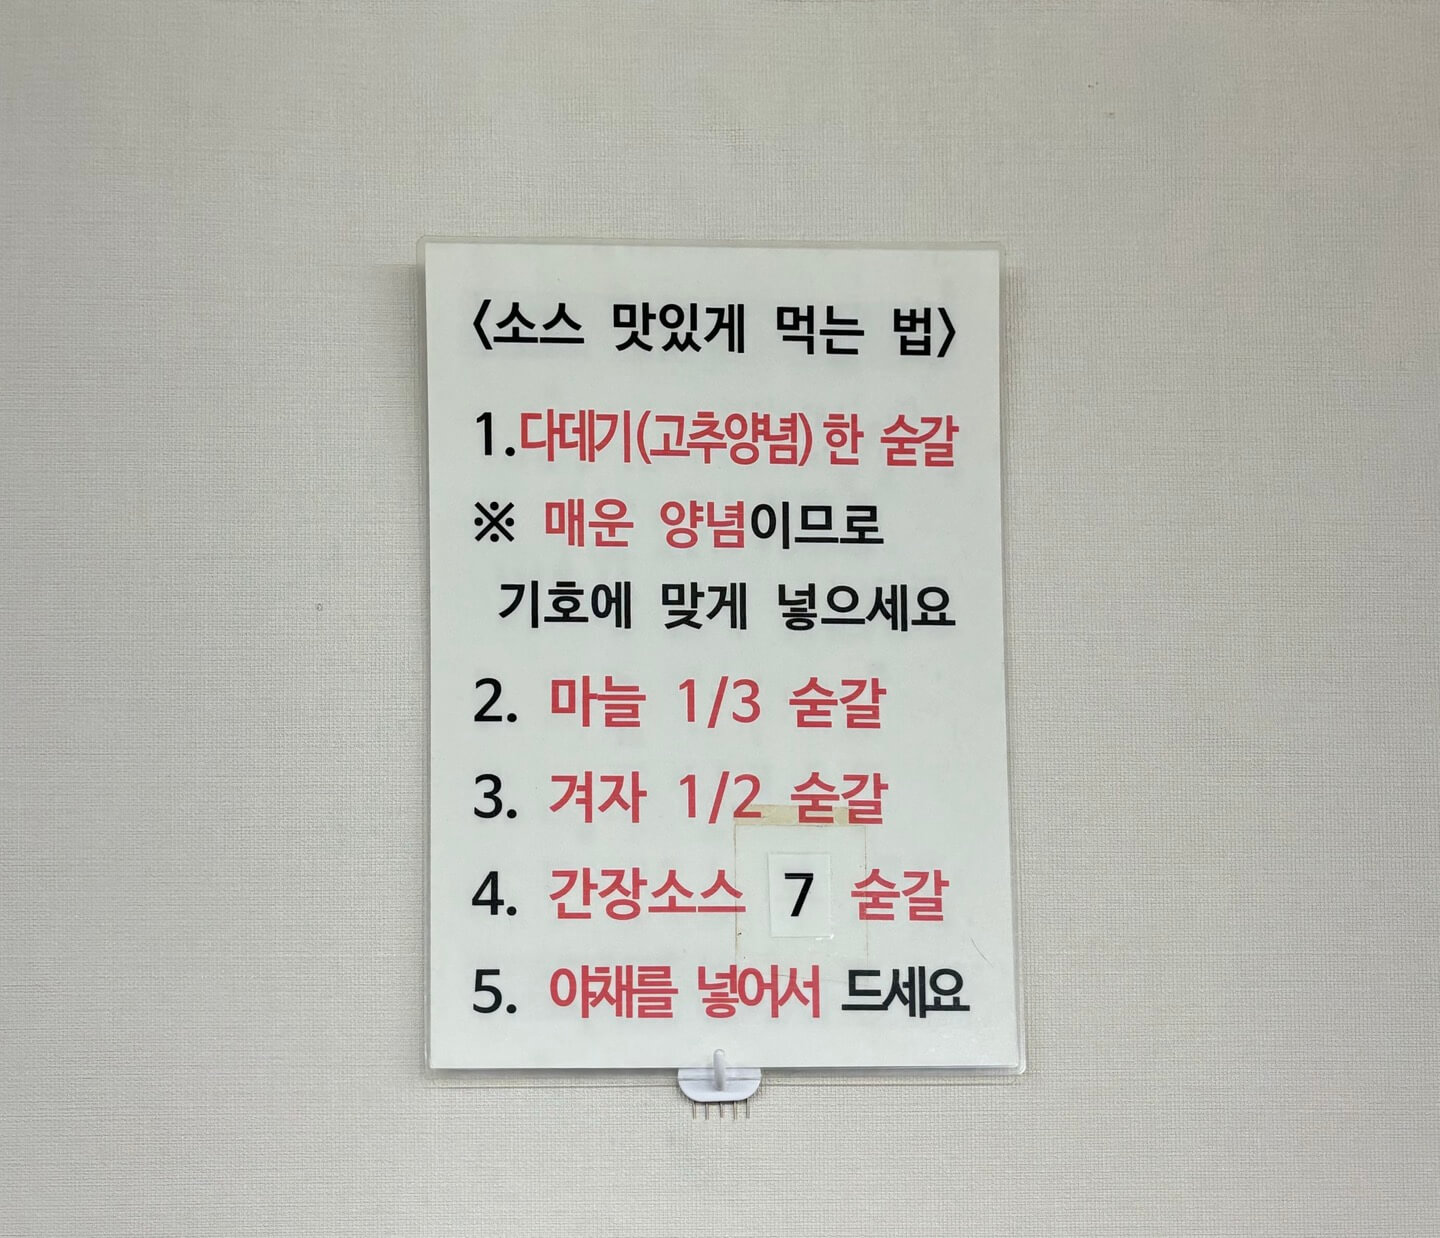 <소스 맛있게 먹는 법>
1.다데기(고추양념) 한 숟갈
※ 매운 양념이므로
기호에 맞게 넣으세요
2. 마늘 1/3 숟갈
3. 겨자 1/2 숟갈
4. 간장소스 7 숟갈
5. 야채를 넣어서 드세요